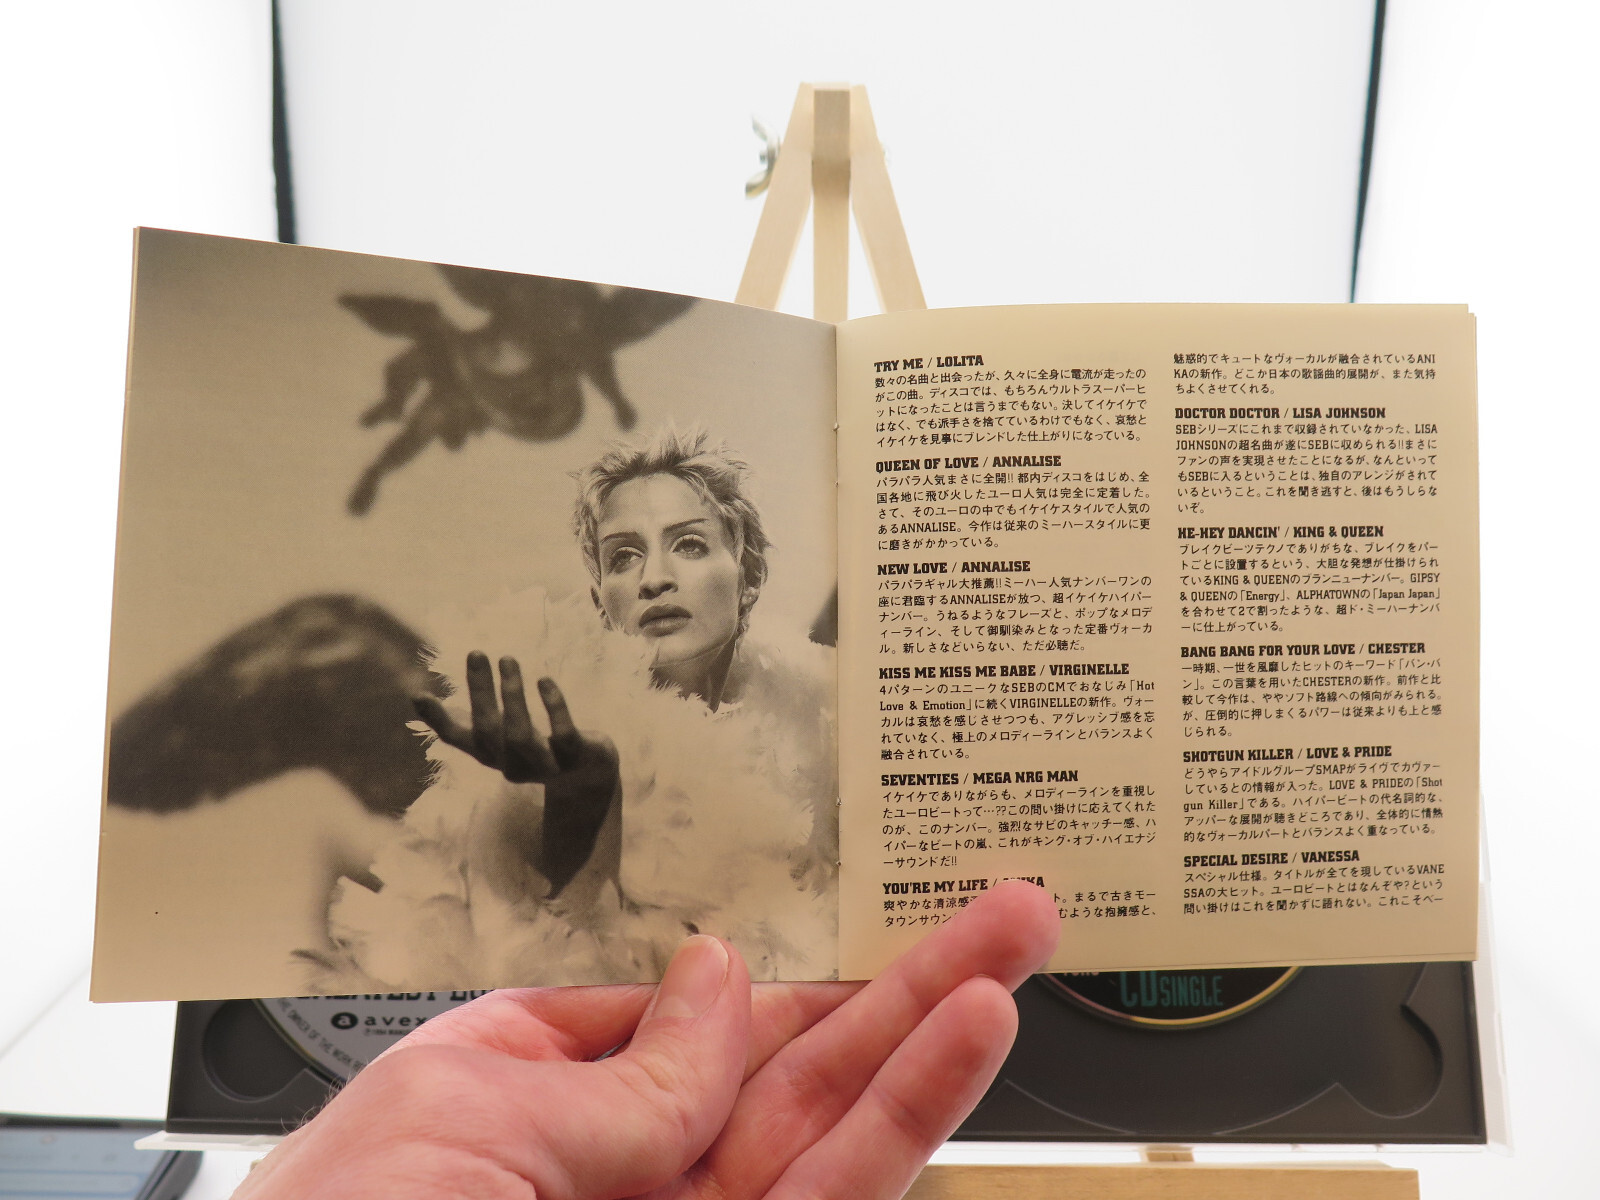 TRY ME / LOLITA
数々の名曲と出会ったが、久々に全身に電流が走ったの
がこの曲。ディスコでは、もちろんウルトラスーパーヒ
ットになったことは言うまでもない。決してイケイケで
はなく、でも派手さを捨てているわけでもなく、哀愁と
イケイケを見事にブレンドした仕上がりになっている。
QUEEN OF LOVE / ANNALISE
パラパラ人気まさに全開!! 都内ディスコをはじめ、全
国各地に飛び火したユーロ人気は完全に定着した。
さて、そのユーロの中でもイケイケスタイルで人気の
あるANNALISE。今作は従来のミーハースタイルに更
に磨きがかかっている。
NEW LOVE / ANNALISE
パラパラギャル大推薦!!ミーハー人気ナンバーワンの
座に君臨するANNALISEが放つ、超イケイケハイパー
ナンバー。うねるようなフレーズと、ポップなメロデ
ィーライン、そして御馴染みとなった定番ヴォーカ
ル。新しさなどいらない、ただ必聴だ。
KISS ME KISS ME BABE / VIRGINELLE
4パターンのユニークなSEBのCMでおなじみ「Hot
Love & Emotion」に続くVIRGINELLEの新作。ヴォー
カルは哀愁を感じさせつつも、アグレッシブ感を忘
れていなく、極上のメロディーラインとバランスよく
融合されている。
SEVENTIES / MEGA NRG MAN
イケイケでありながらも、メロディーラインを重視し
たユーロビートって…??この問い掛けに応えてくれた
のが、このナンバー。強烈なサビのキャッチー感、ハ
イパーなビートの嵐、これがキング・オブ・ハイエナジ
ーサウンドだ!!
YOU'RE MY LIFE /
爽やかな清涼感 ト。まるで古きモー
タウンサウン むような抱擁感と、
魅惑的でキュートなヴォーカルが融合されているANI
KAの新作。どこか日本の歌謡曲的展開が、また気持
ちよくさせてくれる。
DOCTOR DOCTOR / LISA JOHNSON
SEBシリーズにこれまで収録されていなかった、LISA
JOHNSONの超名曲が遂にSEBに収められる!!まさに
ファンの声を実現させたことになるが、なんといって
もSEBに入るということは、独自のアレンジがされて
いるということ。これを聞き逃すと、後はもうしらな
いぞ。
HE-HEY DANCIN' / KING & QUEEN
ブレイクビーツテクノでありがちな、ブレイクをパー
トごとに設置するという、大胆な発想が仕掛けられ
ているKING & QUEENのブランニューナンバー。GIPSY
& QUEENの「Energy」、ALPHATOWNの「Japan Japan」
を合わせて2で割ったような、超ド・ミーハーナンバ
ーに仕上がっている。
BANG BANG FOR YOUR LOVE / CHESTER
一時期、一世を風靡したヒットのキーワード「バン・バ
ン」。この言葉を用いたCHESTERの新作。前作と比
較して今作は、ややソフト路線への傾向がみられる。
が、圧倒的に押しまくるパワーは従来よりも上と感
じられる。
SHOTGUN KILLER / LOVE & PRIDE
どうやらアイドルグループSMAPがライヴでカヴァー
しているとの情報が入った。LOVE & PRIDEの「Shot
gun Killer」である。ハイパービートの代名詞的な、
アッパーな展開が聴きどころであり、全体的に情熱
的なヴォーカルパートとバランスよく重なっている。
SPECIAL DESIRE / VANESSA
スペシャル仕様。タイトルが全てを現しているVANE
SSAの大ヒット。ユーロビートとはなんぞや?という
問い掛けはこれを聞かずに語れない。これこそベー
avex
THE OWNER OF THE WORK
CD SINGLE